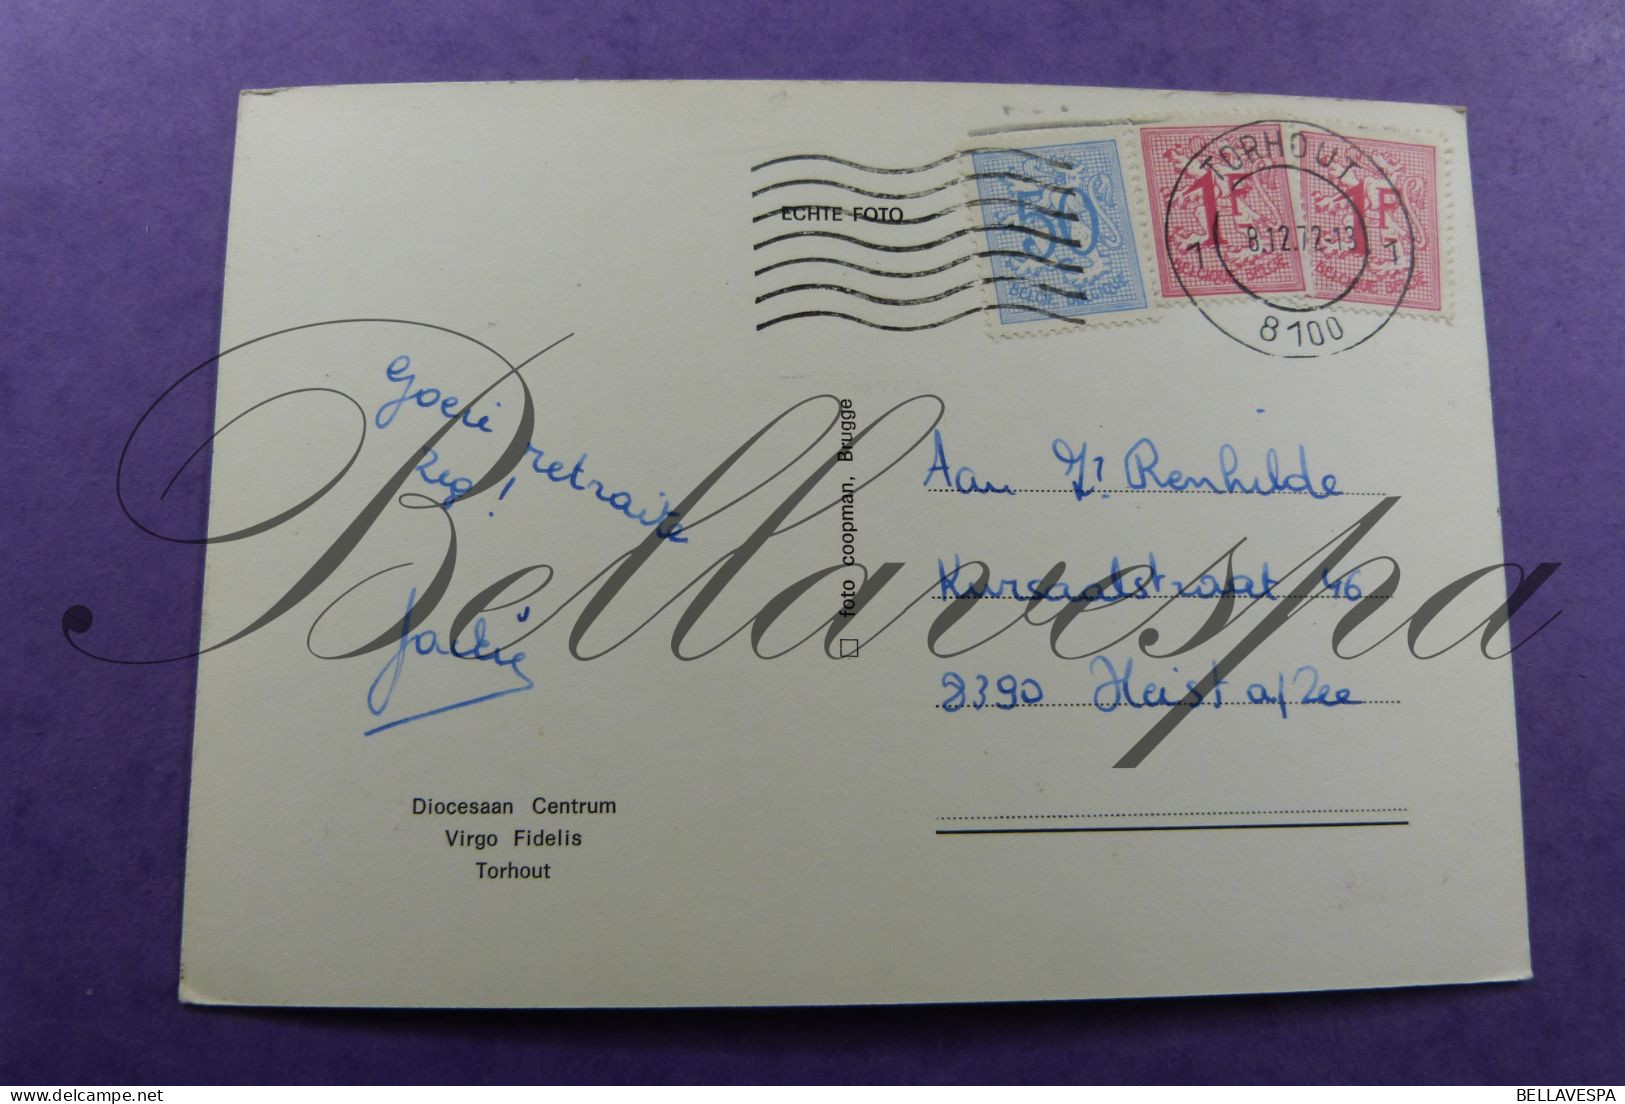 ECHTE FOTO
50
BELGIE BELGIQUE
1F
BELGIQUE BELGIE
1F
BELGIQUE BELGIE
TORHOUT
1 8.12.72-13 1
8100
Goeie retraite
zeg!
Jackie
Diocesaan Centrum
Virgo Fidelis
Torhout
foto coopman, Brugge
Aan Zr Renhilde
Kursaalstraat 46
8390 Heist a/Zee
Bellavespa
BELLAVESPA